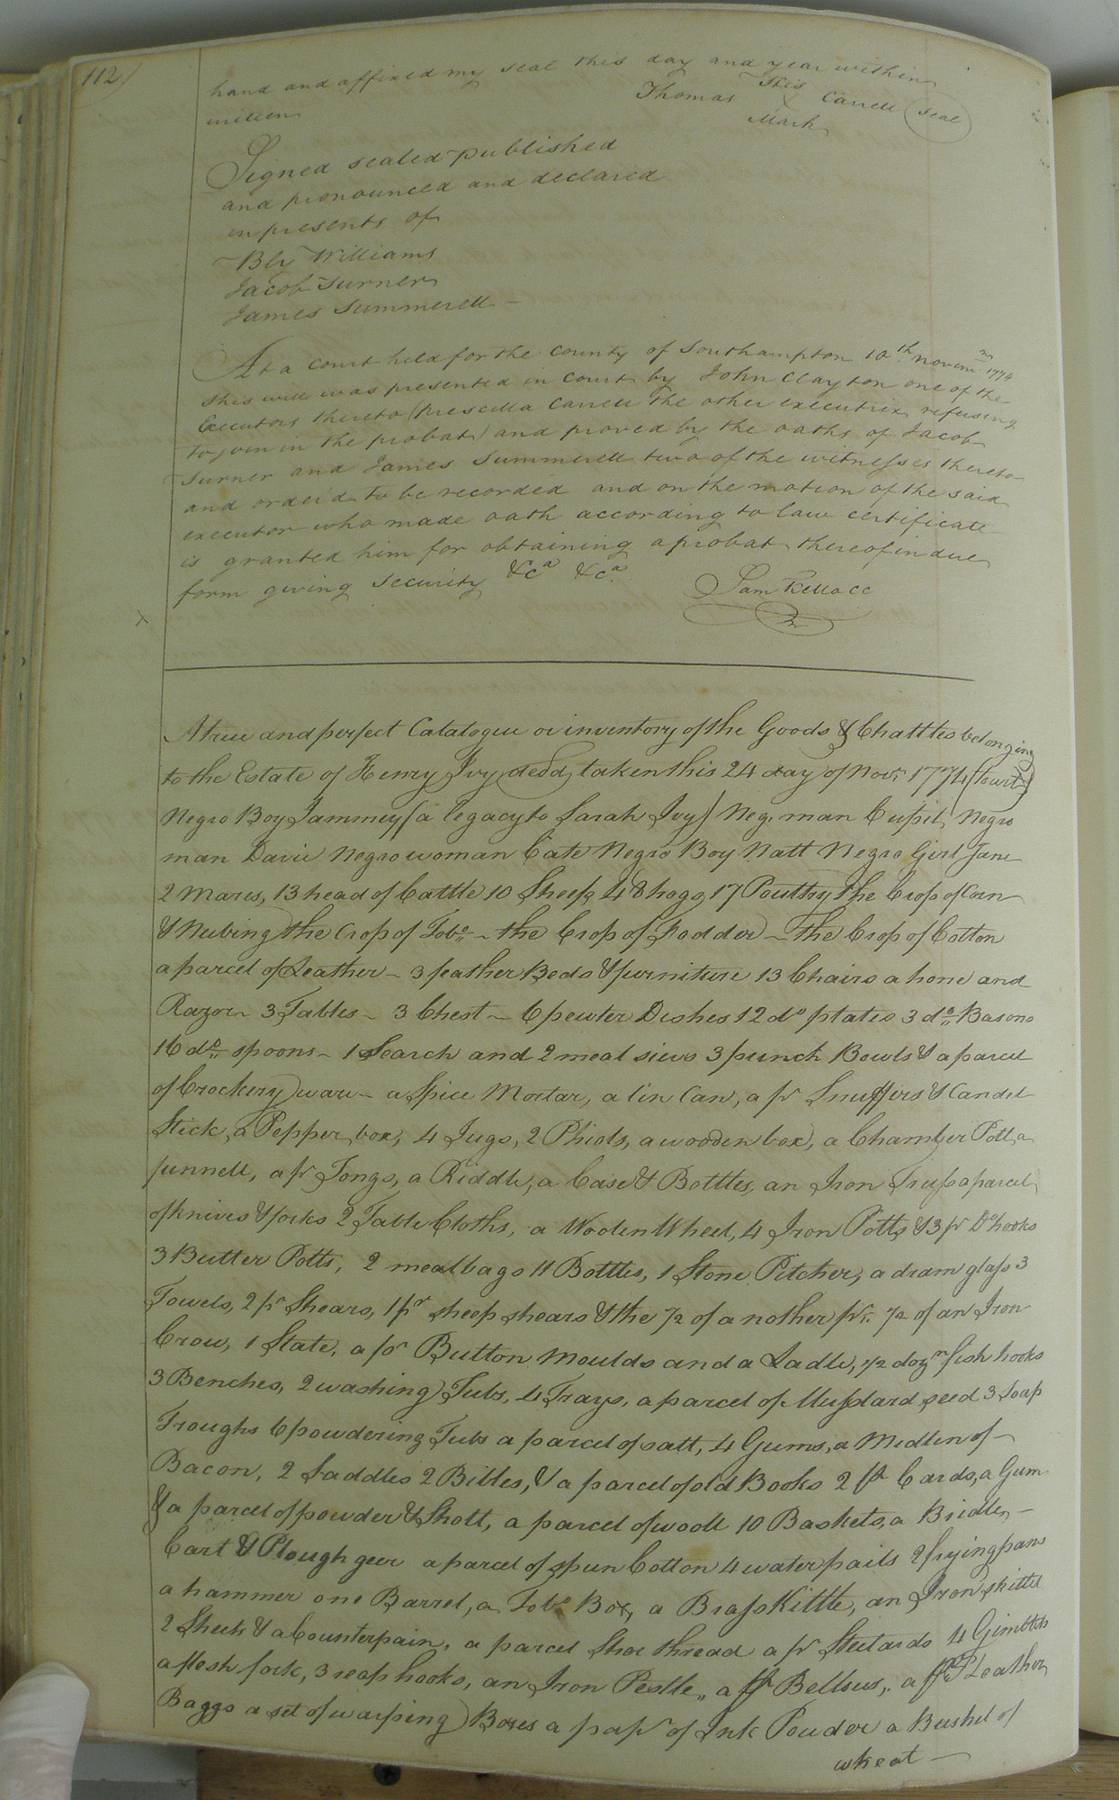 112
hand and affixed my seal this day and year within
written
Thomas This X Mark Carrell Seal
Signed sealed published
and pronounced and declared
in presents of
Bly Williams
Jacob Turner
James Summerell
At a court held for the county of Southampton 10th Novem 1774
This will was presented in court by John Clayton one of the
Executors thereto (Prescilla Carrell the other executrix refusing
to join in the probat) and proved by the oaths of Jacob
Turner and James Summerell two of the witnesses thereto
and order'd to be recorded and on the motion of the said
executor who made oath according to law certificate
is granted him for obtaining a probat thereof in due
form giving security &ca &ca
Sam Kello CC
A true and perfect Catalogue or inventory of the Goods & Chattles belonging
to the Estate of Henry Ivy decd, taken this 24 day of Novr. 1774
Negro Boy Jammey (a legacy to Sarah Ivy) Neg. man Cupit, Negro
man Davie Negro woman Cate Negro Boy Natt Negro Girl Jane
2 Mares, 13 head of Cattle 10 Sheep 48 hogs 17 Poultry the Crop of Corn
& Nubing the Crop of Tobo. - the Crop of Fodder - the Crop of Cotton
a parcel of Leather - 3 feather Beds & furniture 13 Chairs a hone and
Razor - 3 Tables - 3 Chest - 6 pewter Dishes 12 do plates 3 do Basons
16 do spoons - 1 Search and 2 meal sievs 3 punch Bowls & a parcel
of Crockery ware - a Spice Mortar, a tin Can, a pr Snuffers & Candel
Stick, a Pepper box, 4 Jugs, 2 Phiols, a wooden box, a Chamber Pott, a
funnell, a pr Tongs, a Riddle, a Case & Bottles, an Iron a parcel
of knives & forks 2 Table Cloths, a Wooten Wheel, 4 Iron Potts & 3 pr Do hooks
3 Butter Potts, 2 meal bags 11 Bottles, 1 Stone Pitcher, a dram glass 3
Towels, 2 pr Shears, 1 pr sheep shears & the 1/2 of a nother pr. 1/2 of an Iron
Crow, 1 State, a pr Button Moulds and a Ladle, 1/2 dozn fish hooks
3 Benches, 2 washing Tubs, 4 Trays, a parcel of Mustard seed 3 Soap
Troughs 6 powdering Tubs a parcel of salt, 4 Gums, a Medlen of
Bacon, 2 Saddles 2 Bibles, & a parcel of old Books 2 pr Cards, a Gum
& a parcel of powder & Shott, a parcel of wooll 10 Baskets, a Bridle,
Cart & Plough geer a parcel of spun Cotton 4 water pails 2 frying pans
a hammer one Barrel, a Tobo. Box, a Brass Kittle, an Iron skittel
2 Sheets & a Counterpain, a parcel Shoe thread a pr Steelards 4 Gimblets
a flesh fork, 3 reap hooks, an Iron Pestle, a pr Bellows, a pr Leather
Baggs a set of warping Boxes a papr of Ink Powder a Bushel of
wheat